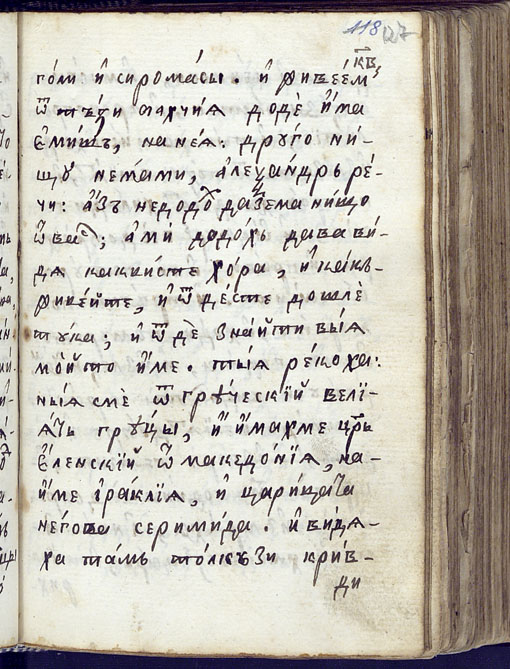 118 127
к҃в
го́ли и҆ сирома́сы . и҆ живѣе́м
ѿ тъ́зи ма́хчиѧ додѐ и҆́ма
є҆ми́шъ, на неѧ̀ . дрꙋ́го ни-
щꙋ̀ не́мами, а҆леѯа́ндръ ре́-
чи: а҆́зъ недодо́х да зема ни́що
ѿ ва́с; а҆мѝ додо́хъ да ва ви́-
дѧ какви́сте хо́ра, и҆ ка́къ-
живе́йте, и҆ ѿ де́сте дошлѐ
тꙋка; и҆ ѿ дѐ зна́йти вы́ѧ
мо́йто и҆́ме . ты́ѧ реко́ха:
ны́ѧ смѐ ѿ грꙋ́ческїй велї-
ѧ́тъ грꙋ́цы, и҆ и҆́махме цр҃ъ
є҆́ленскїй ѿ македо́нїѧ, на-
и҆́ме і҆ра́клїѧ, и҆ цари́цата
не́гова серими́да . и҆ ви́дѧ-
ха та́мъ то́лкъзи кри́в-
ди